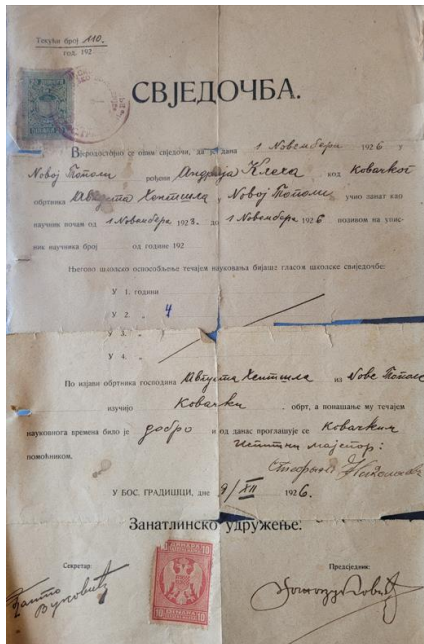 Текући број 110.
год. 192
СВЈЕДОЧБА.
Вјеродостојно се овим свједочи, да је дана 1 Новембра 1926 у
Новој Тополи рођени Андрија Клеса код ковачког
обртника Августа Хентшла у Новој Тополи учио занат као
научник почам од 1 Новембра 1923. до 1 Новембра 1926 позивом на упис-
ник научника број од године 192
Његово школско оспособљење течајем науковања бијаше гласом школске свједочбе:
У 1. години
У 2. „ 4
У 3. „
У 4. „
По изјави обртника господина Августа Хентшла из Нове Тополе
изучијо Ковачки обрт, а понашање му течајем
науковног времена било је добро и од данас проглашује се Ковачким
помоћником.
Испитни мајстор:
У БОС. ГРАДИШЦИ, дне 9/XII 1926.
Занатлинско удружење:
Секретар:
Предсједник:
Вуковић
10
ДИНАРА
10